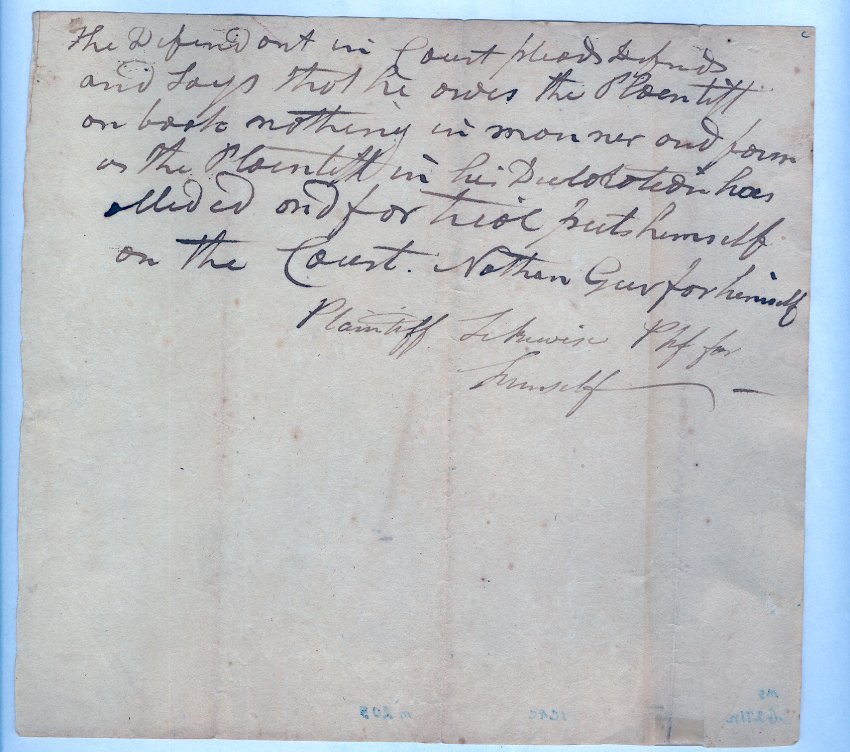 The Defendant in Court pleads Defends
and Says that he owes the Plaentiff
on book nothing in manner and form
as the Plaentiff in his Declaration has
alleded and for trial puts himself
on the Court. Nathan for himself
Plaintiff Likewise Plf for
himself